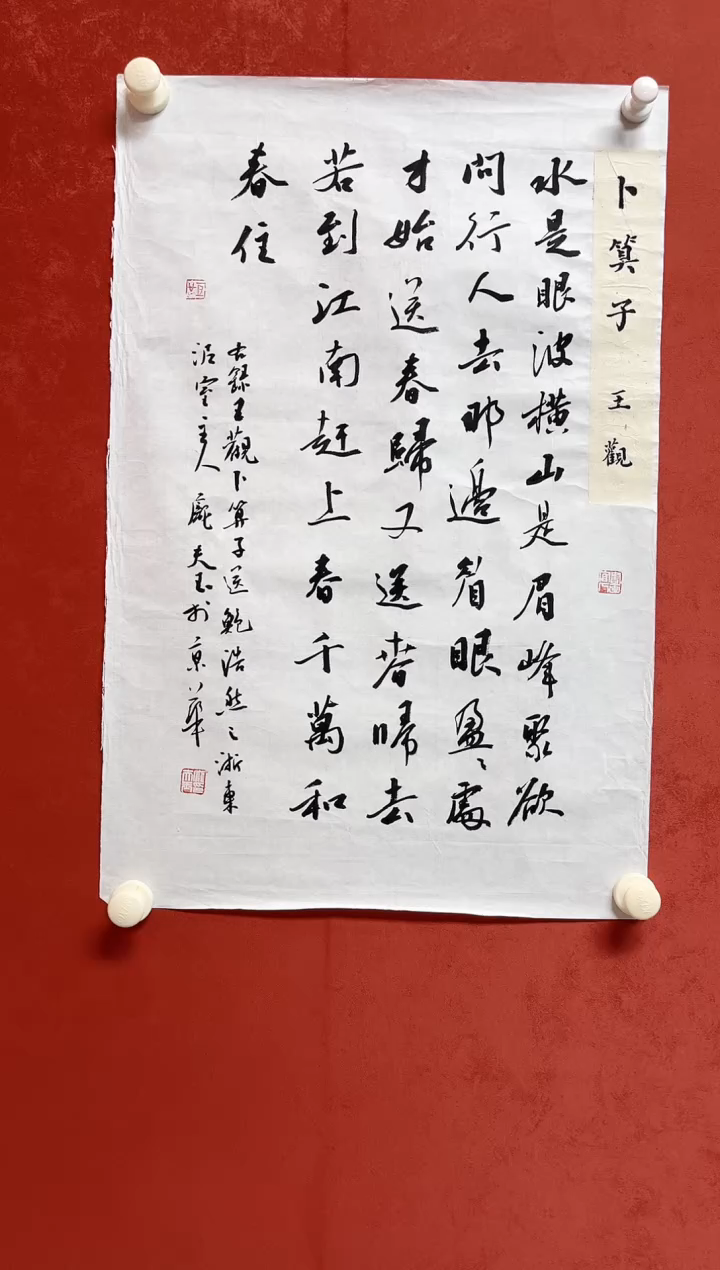 卜算子 王觀
水是眼波橫山是眉峰聚欲
問行人去那邊眉眼盈〻處
才始送春歸又送君帰去
若到江南赶上春千萬和
春住
右錄王觀卜算子送鮑浩然之浙東
室主人 龐夫玉於京華